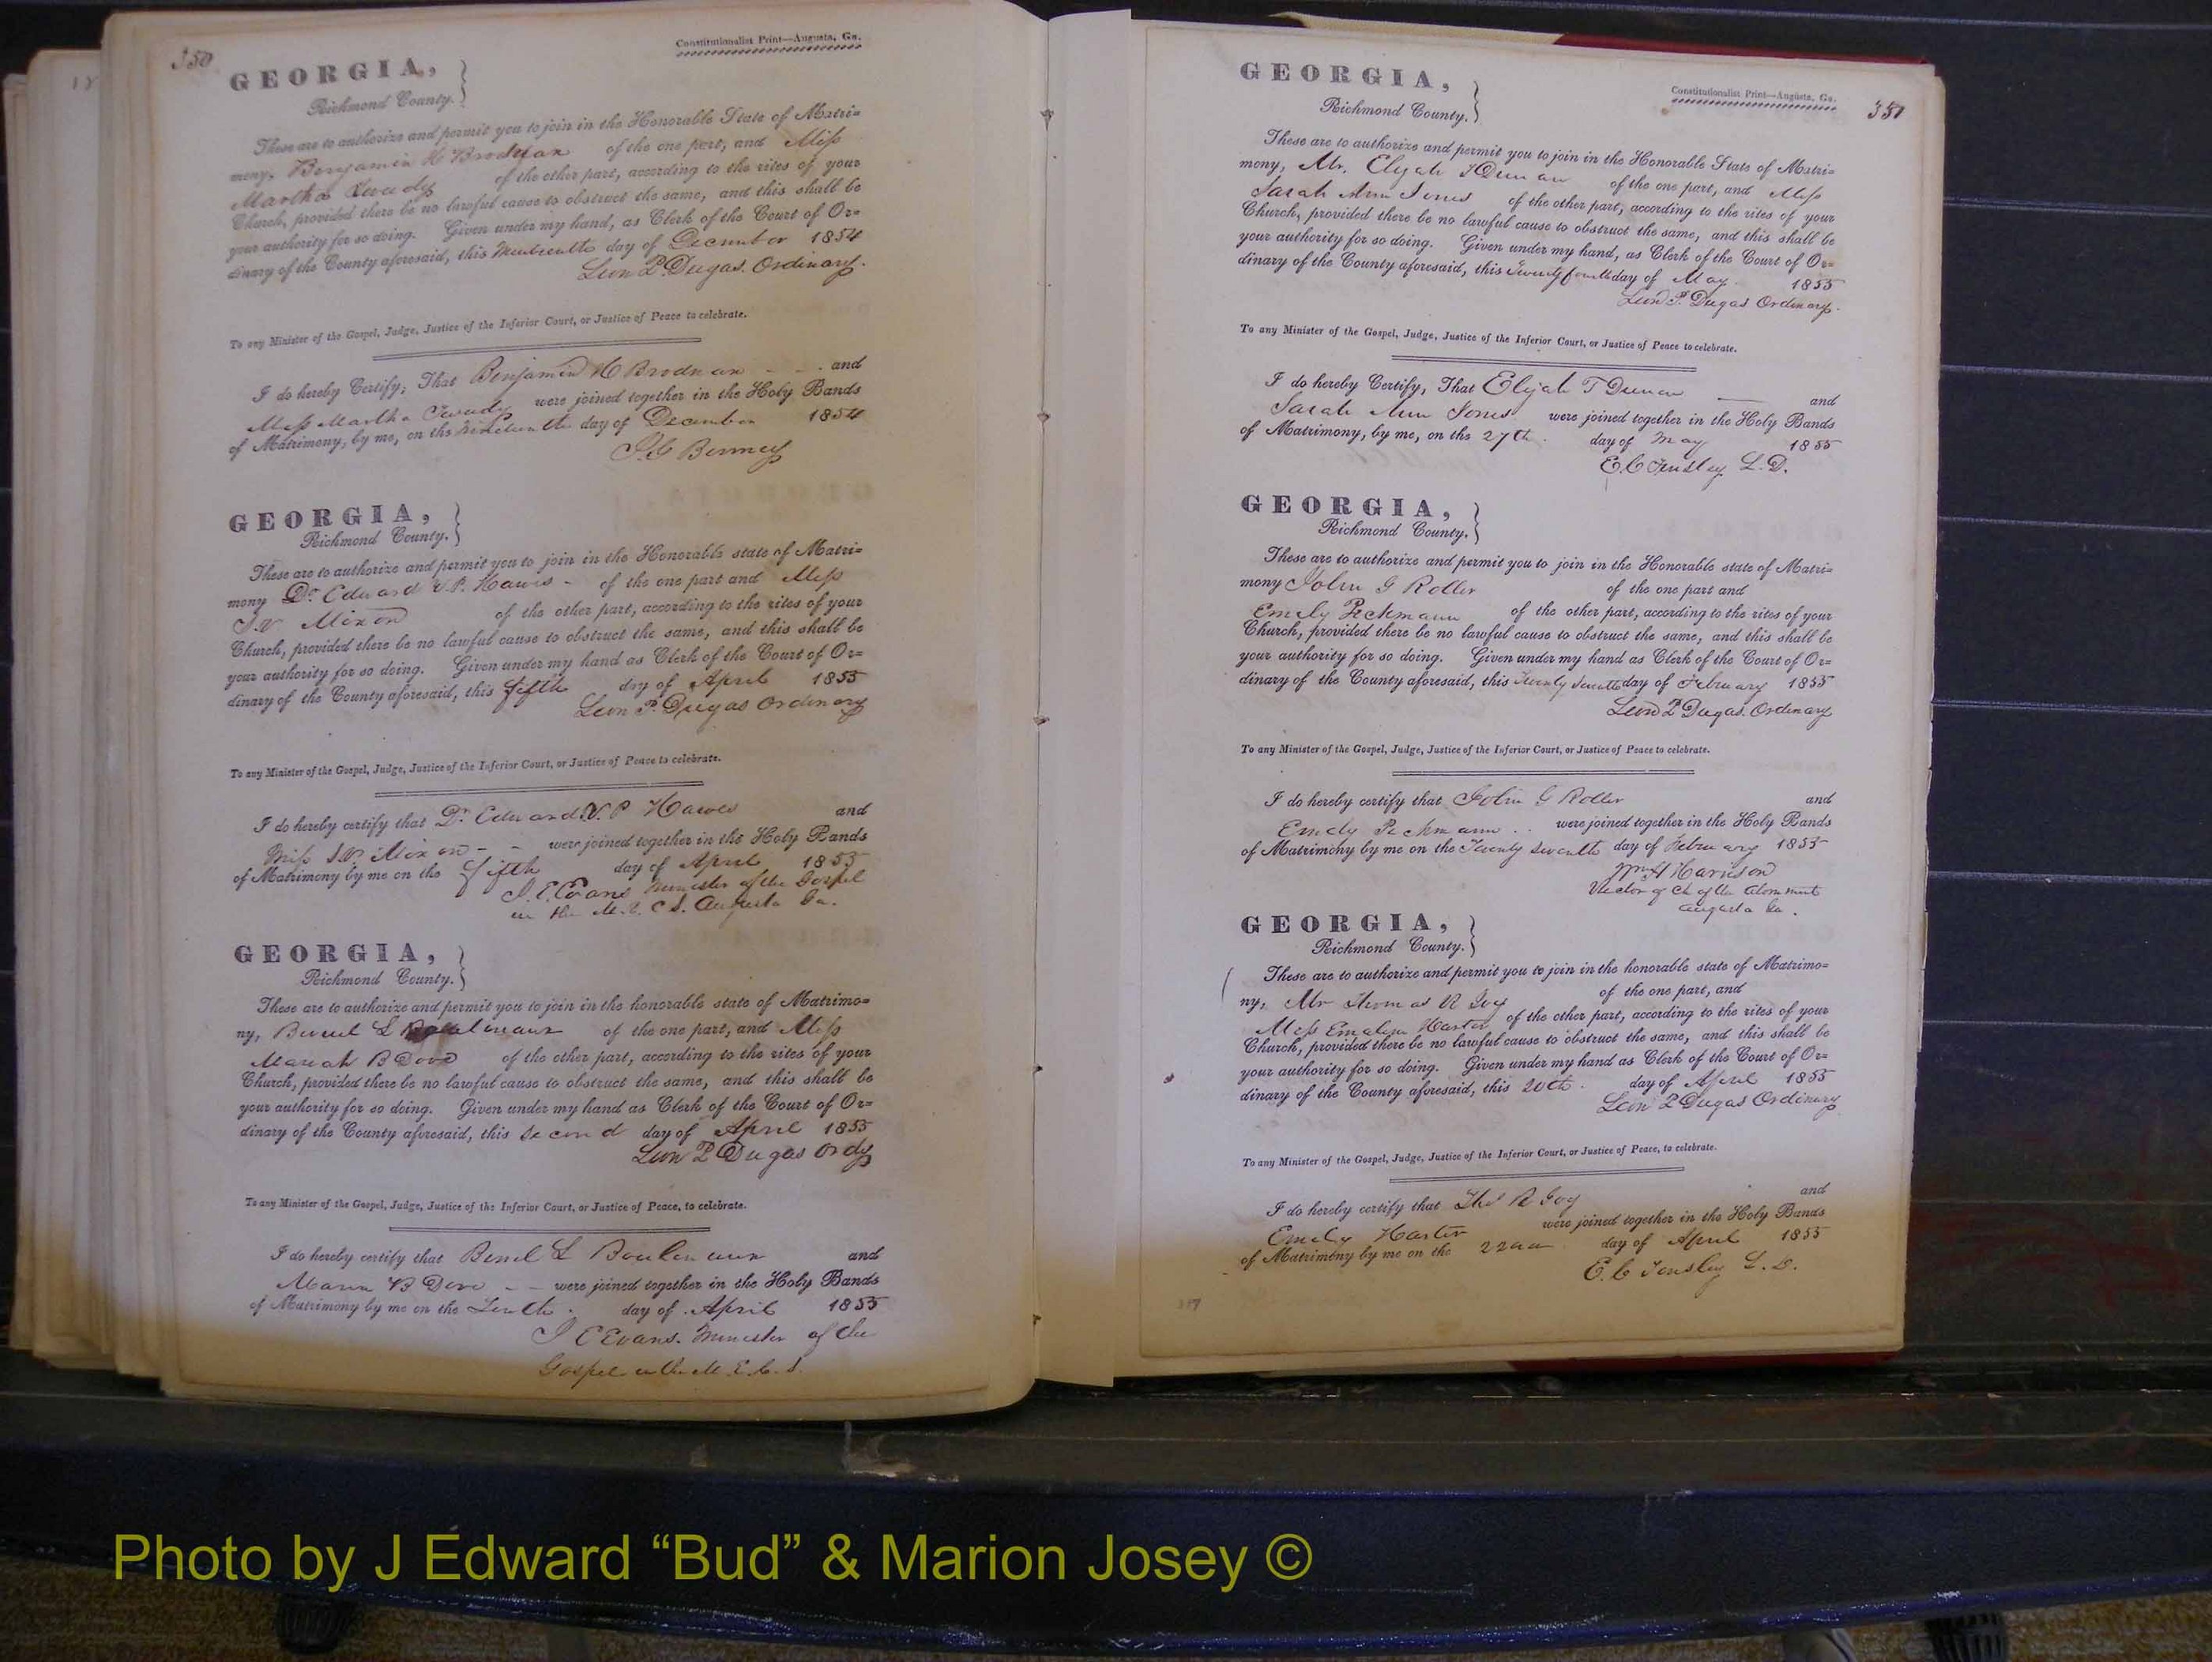 350
Constitutionalist Print—Augusta, Ga.
GEORGIA,
Richmond County.
These are to authorize and permit you to join in the Honorable State of Matri=
mony, Benjamin H Brodnax of the one part, and Miss
Martha of the other part, according to the rites of your
Church, provided there be no lawful cause to obstruct the same, and this shall be
your authority for so doing. Given under my hand, as Clerk of the Court of Or=
dinary of the County aforesaid, this day of December 1854
Leon P. Dugas. Ordinary.
To any Minister of the Gospel, Judge, Justice of the Inferior Court, or Justice of Peace to celebrate.
I do hereby Certify, That Benjamin H Brodnax and
Miss Martha were joined together in the Holy Bands
of Matrimony, by me, on the day of December 1854
GEORGIA,
Richmond County.
These are to authorize and permit you to join in the Honorable state of Matri=
mony Dr. Edward of the one part and Miss
Mixon of the other part, according to the rites of your
Church, provided there be no lawful cause to obstruct the same, and this shall be
your authority for so doing. Given under my hand as Clerk of the Court of Or=
dinary of the County aforesaid, this fifth day of April 1855
Leon P. Dugas Ordinary
To any Minister of the Gospel, Judge, Justice of the Inferior Court, or Justice of Peace to celebrate.
I do hereby certify that Dr. Edward and
Miss Mixon were joined together in the Holy Bands
of Matrimony by me on the fifth day of April 1855
J. E. Evans Minister of the Gospel
in the M. E. C S. Augusta Ga.
GEORGIA,
Richmond County.
These are to authorize and permit you to join in the honorable state of Matrimo=
ny, of the one part, and Miss
Mariah B Dove of the other part, according to the rites of your
Church, provided there be no lawful cause to obstruct the same, and this shall be
your authority for so doing. Given under my hand as Clerk of the Court of Or=
dinary of the County aforesaid, this second day of April 1855
Leon P Dugas Ordy
To any Minister of the Gospel, Judge, Justice of the Inferior Court, or Justice of Peace, to celebrate.
I do hereby certify that and
B Dove were joined together in the Holy Bands
of Matrimony by me on the Tenth day of April 1855
J E Evans. Minister of the
Gospel in the M. E. C. S.
GEORGIA,
Richmond County.
Constitutionalist Print—Augusta, Ga.
351
These are to authorize and permit you to join in the Honorable State of Matri=
mony, Mr. Elijah T Duncan of the one part, and Miss
Sarah Ann Jones of the other part, according to the rites of your
Church, provided there be no lawful cause to obstruct the same, and this shall be
your authority for so doing. Given under my hand, as Clerk of the Court of Or=
dinary of the County aforesaid, this Twenty fourth day of May 1855
Leon P. Dugas Ordinary.
To any Minister of the Gospel, Judge, Justice of the Inferior Court, or Justice of Peace to celebrate.
I do hereby Certify, That Elijah T Duncan and
Sarah Ann Jones were joined together in the Holy Bands
of Matrimony, by me, on the 27th day of May 1855
E. C Tinsley L. D.
GEORGIA,
Richmond County.
These are to authorize and permit you to join in the Honorable state of Matri=
mony John G Roller of the one part and
Emely Peckmann of the other part, according to the rites of your
Church, provided there be no lawful cause to obstruct the same, and this shall be
your authority for so doing. Given under my hand as Clerk of the Court of Or=
dinary of the County aforesaid, this Twenty Seventh day of February 1855
Leon P Dugas. Ordinary
To any Minister of the Gospel, Judge, Justice of the Inferior Court, or Justice of Peace to celebrate.
I do hereby certify that John G Roller and
Emely Peckmann were joined together in the Holy Bands
of Matrimony by me on the Twenty Seventh day of February 1855
Wm H Harrison
Rector of Ch of the Atonement
Augusta Ga.
GEORGIA,
Richmond County.
These are to authorize and permit you to join in the honorable state of Matrimo=
ny, Mr Thomas R of the one part, and
Miss Emaline Harter of the other part, according to the rites of your
Church, provided there be no lawful cause to obstruct the same, and this shall be
your authority for so doing. Given under my hand as Clerk of the Court of Or=
dinary of the County aforesaid, this 20th day of April 1855
Leon P Dugas Ordinary
To any Minister of the Gospel, Judge, Justice of the Inferior Court, or Justice of Peace, to celebrate.
I do hereby certify that Thos R and
Emely Harter were joined together in the Holy Bands
of Matrimony by me on the day of April 1855
E. C Tinsley L. D.
Photo by J Edward “Bud” & Marion Josey ©